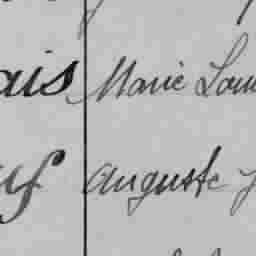 ais Marie Lou
uf Auguste J